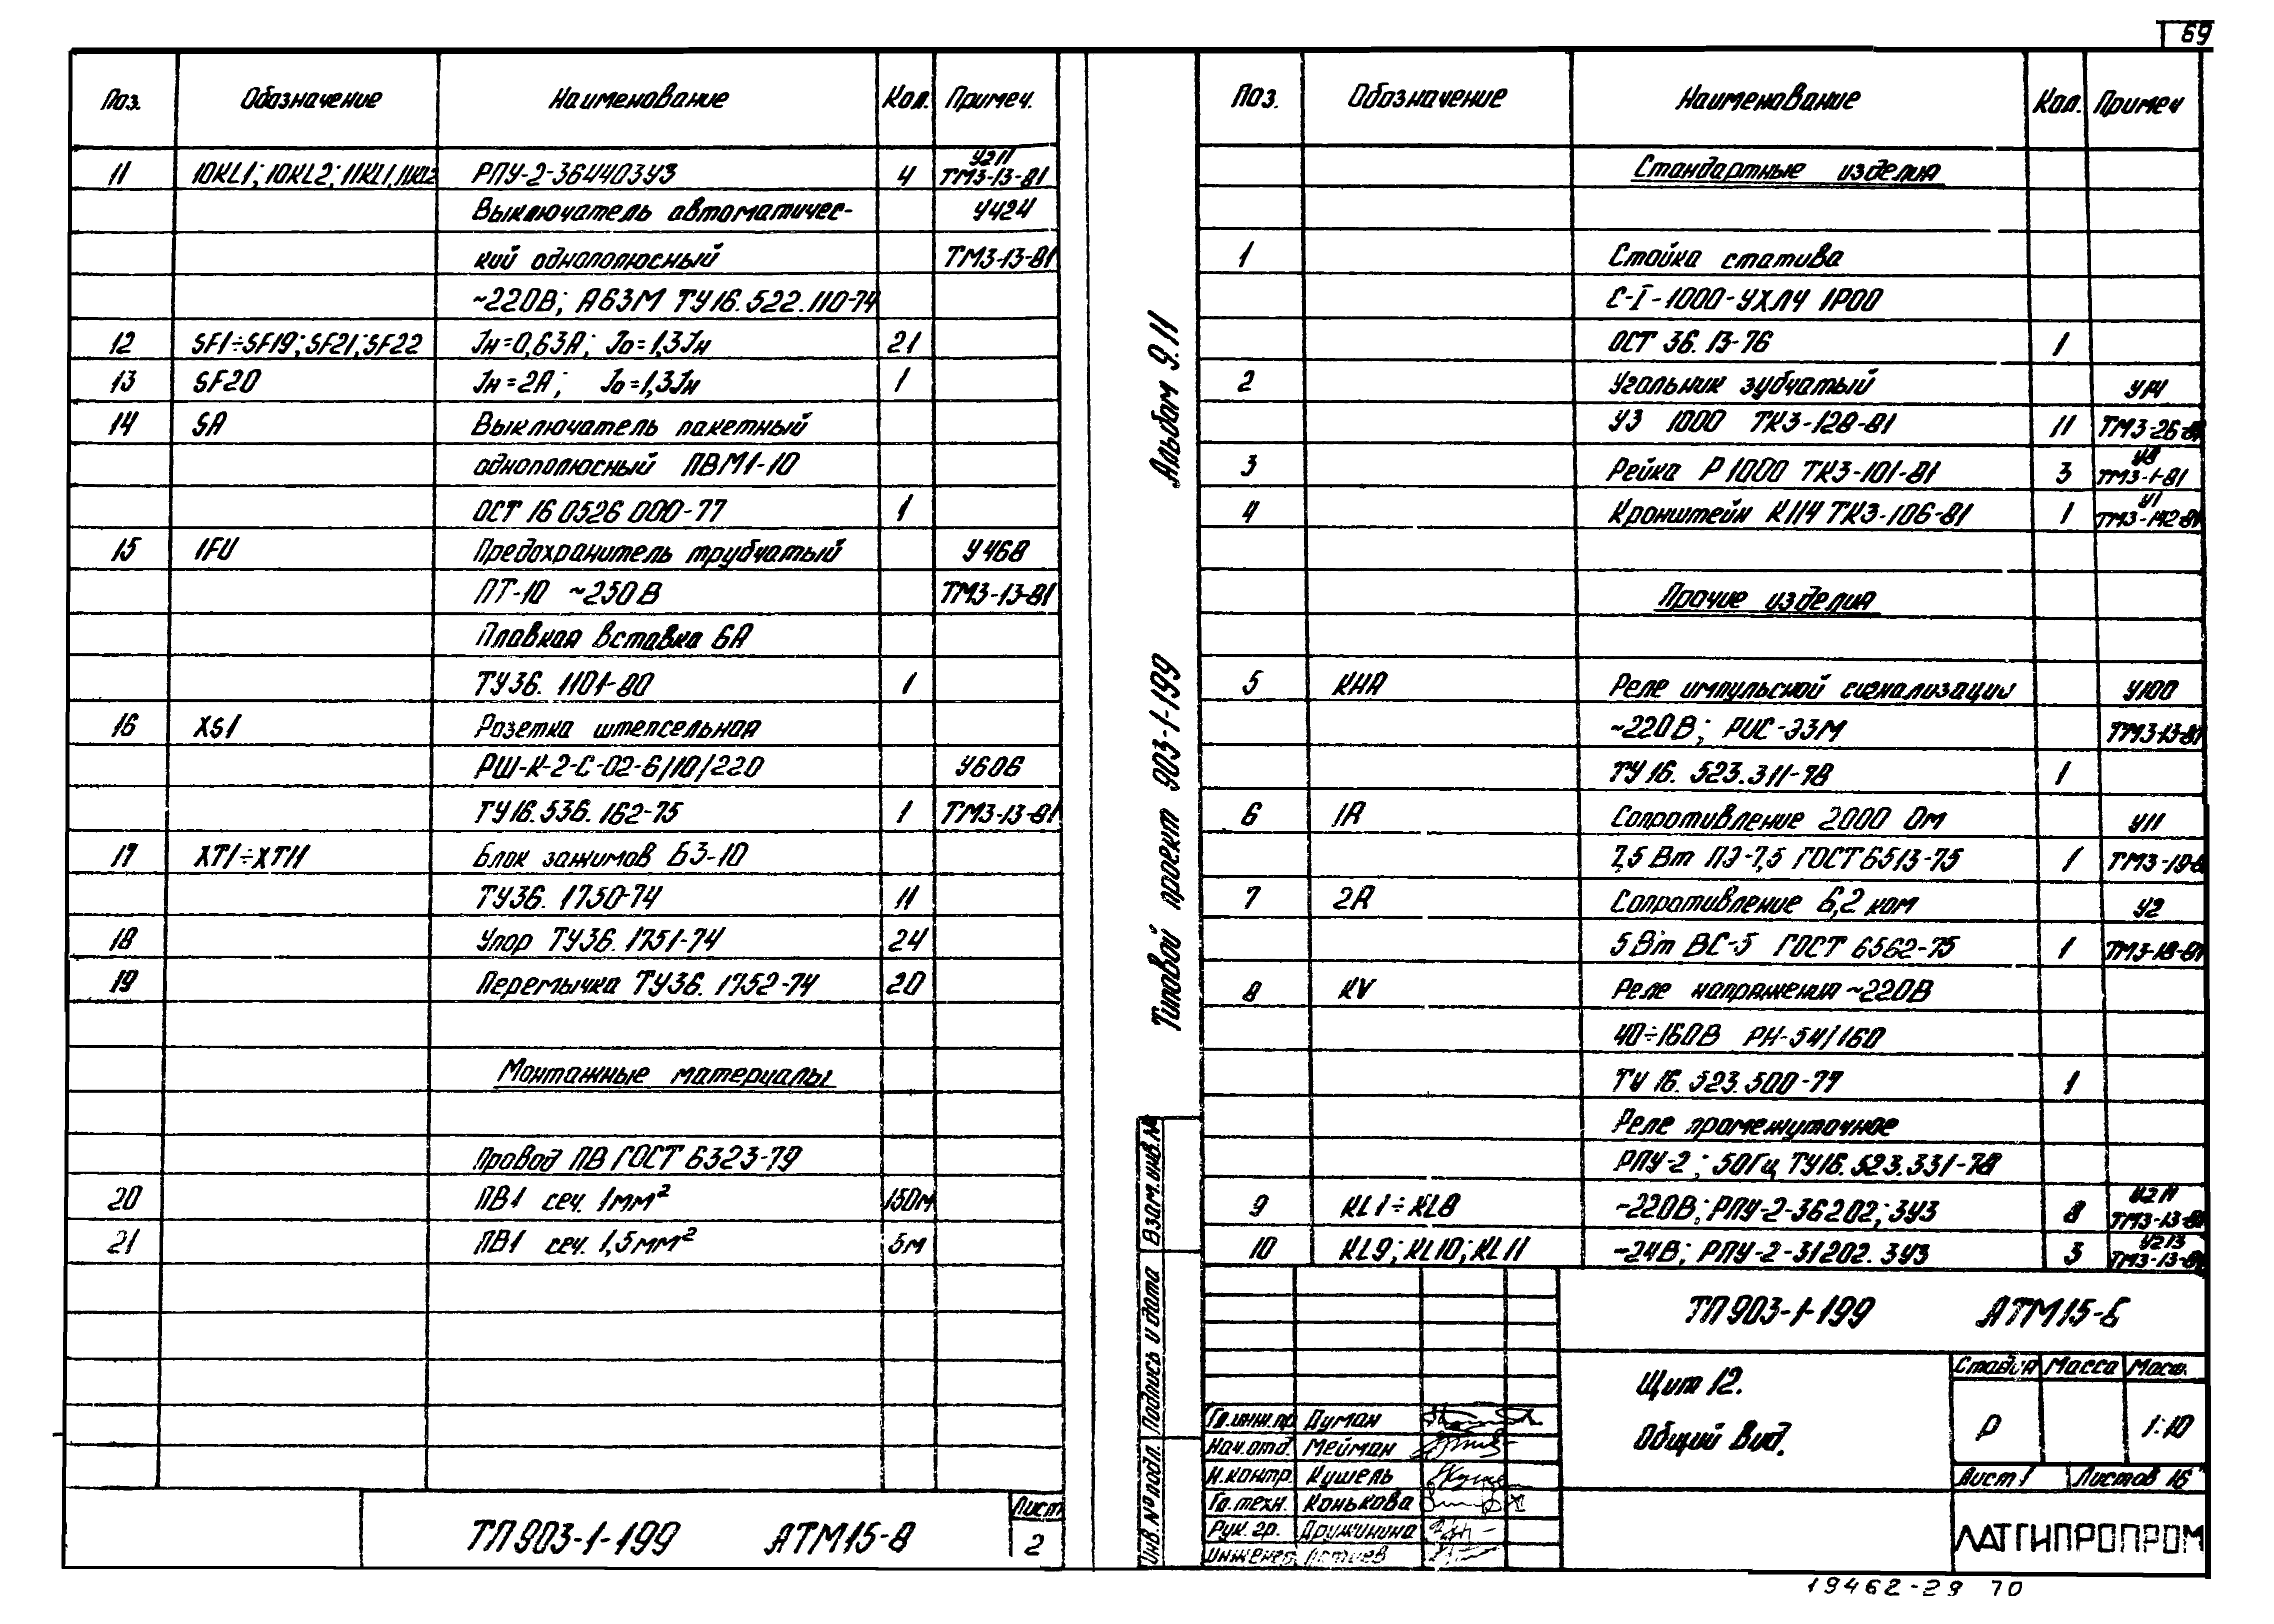 69
Поз. Обозначение Наименование Кол. Примеч.
У211
11 10KL1; 10KL2; 11KL1, 11KL2 РПУ-2-364403У3 4 ТМ3-13-81
Выключатель автоматичес- У424
кий однополюсный ТМ3-13-81
~220В; А63М ТУ16.522.110-74
12 SF1÷SF19; SF21; SF22 Iн=0,63А; Io=1,3Iн 21
13 SF20 Iн=2А; Io=1,3Iн 1
14 SA Выключатель пакетный
однополюсный ПВМ1-10
ОСТ 16 0526 000-77 1
15 1FU Предохранитель трубчатый У468
ПТ-10 ~250В ТМ3-13-81
Плавкая вставка 6А
ТУ36. 1101-80 1
16 XS1 Розетка штепсельная
РШ-К-2-С-02-6/10/220 У606
ТУ16.536.162-75 1 ТМ3-13-81
17 XT1÷XT11 Блок зажимов БЗ-10
ТУ36. 1750-74 11
18 Упор ТУ36. 1751-74 24
19 Перемычка ТУ36. 1752-74 20
Монтажные материалы
Провод ПВ ГОСТ 6323-79
20 ПВ1 сеч. 1мм² 150м
21 ПВ1 сеч. 1,5мм² 5м
ТП903-1-199 АТМ15-8
Лист
2
Альбом 9.11
Типовой проект 903-1-199
Взам.инв.№
Подпись и дата
Инв.№подл.
Поз. Обозначение Наименование Кол. Примеч
Стандартные изделия
1 Стойка статива
С-I-1000-УХЛ4 IP00
ОСТ 36.13-76 1
2 Угольник зубчатый У14
УЗ 1000 ТК3-128-81 11 ТМ3-26-81
У8
3 Рейка Р1000 ТК3-101-81 3 ТМ3-1-81
У1
4 Кронштейн К114 ТК3-106-81 1 ТМ3-142-81
Прочие изделия
5 КНА Реле импульсной сигнализации У100
~220В; РИС-Э3М ТМ3-13-81
ТУ16. 523.311-78 1
6 1R Сопротивление 2000 Ом У11
7,5 Вт ПЭ-7,5 ГОСТ 6513-75 1 ТМ3-19-8
7 2R Сопротивление 6,2 ком У2
5Вт ВС-5 ГОСТ 6562-75 1 ТМ3-18-81
8 KV Реле напряжения ~220В
40÷160В РН-54/160
ТУ 16.523.500-77 1
Реле промежуточное
РПУ-2; 50Гц ТУ16.523.331-78
9 KL1÷KL8 ~220В; РПУ-2-36202; 3У3 8 ТМ3-13-81
У213
10 KL9; KL10; KL11 -24В; РПУ-2-31202. 3У3 3 ТМ3-13-81
ТП903-1-199 АТМ15-8
Щит 12.
Общий вид.
Стадия Масса Масш.
Р 1:10
Лист 1 Листов 16
Гл.инж.пр. Думан
Нач.отд. Мейман
Н.контр. Кушель
Гл.техн. Конькова
Рук.гр. Дружинина
Инженер
ЛАТГИПРОПРОМ
19462-29 70